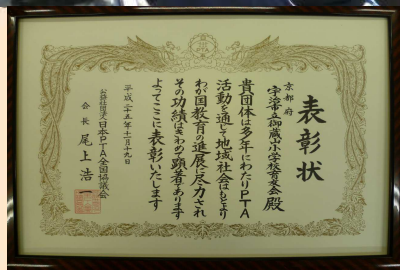 表彰状
京都府
宇治市立御蔵山小学校育友会殿
貴団体は多年にわたりPTA
活動を通じて地域社会はもとより
わが国教育の進展に尽力され
その功績はきわめて顕著であります
よってここに表彰いたします
平成二十五年十一月十九日
公益社団法人日本PTA全国協議会
会長 尾上浩一